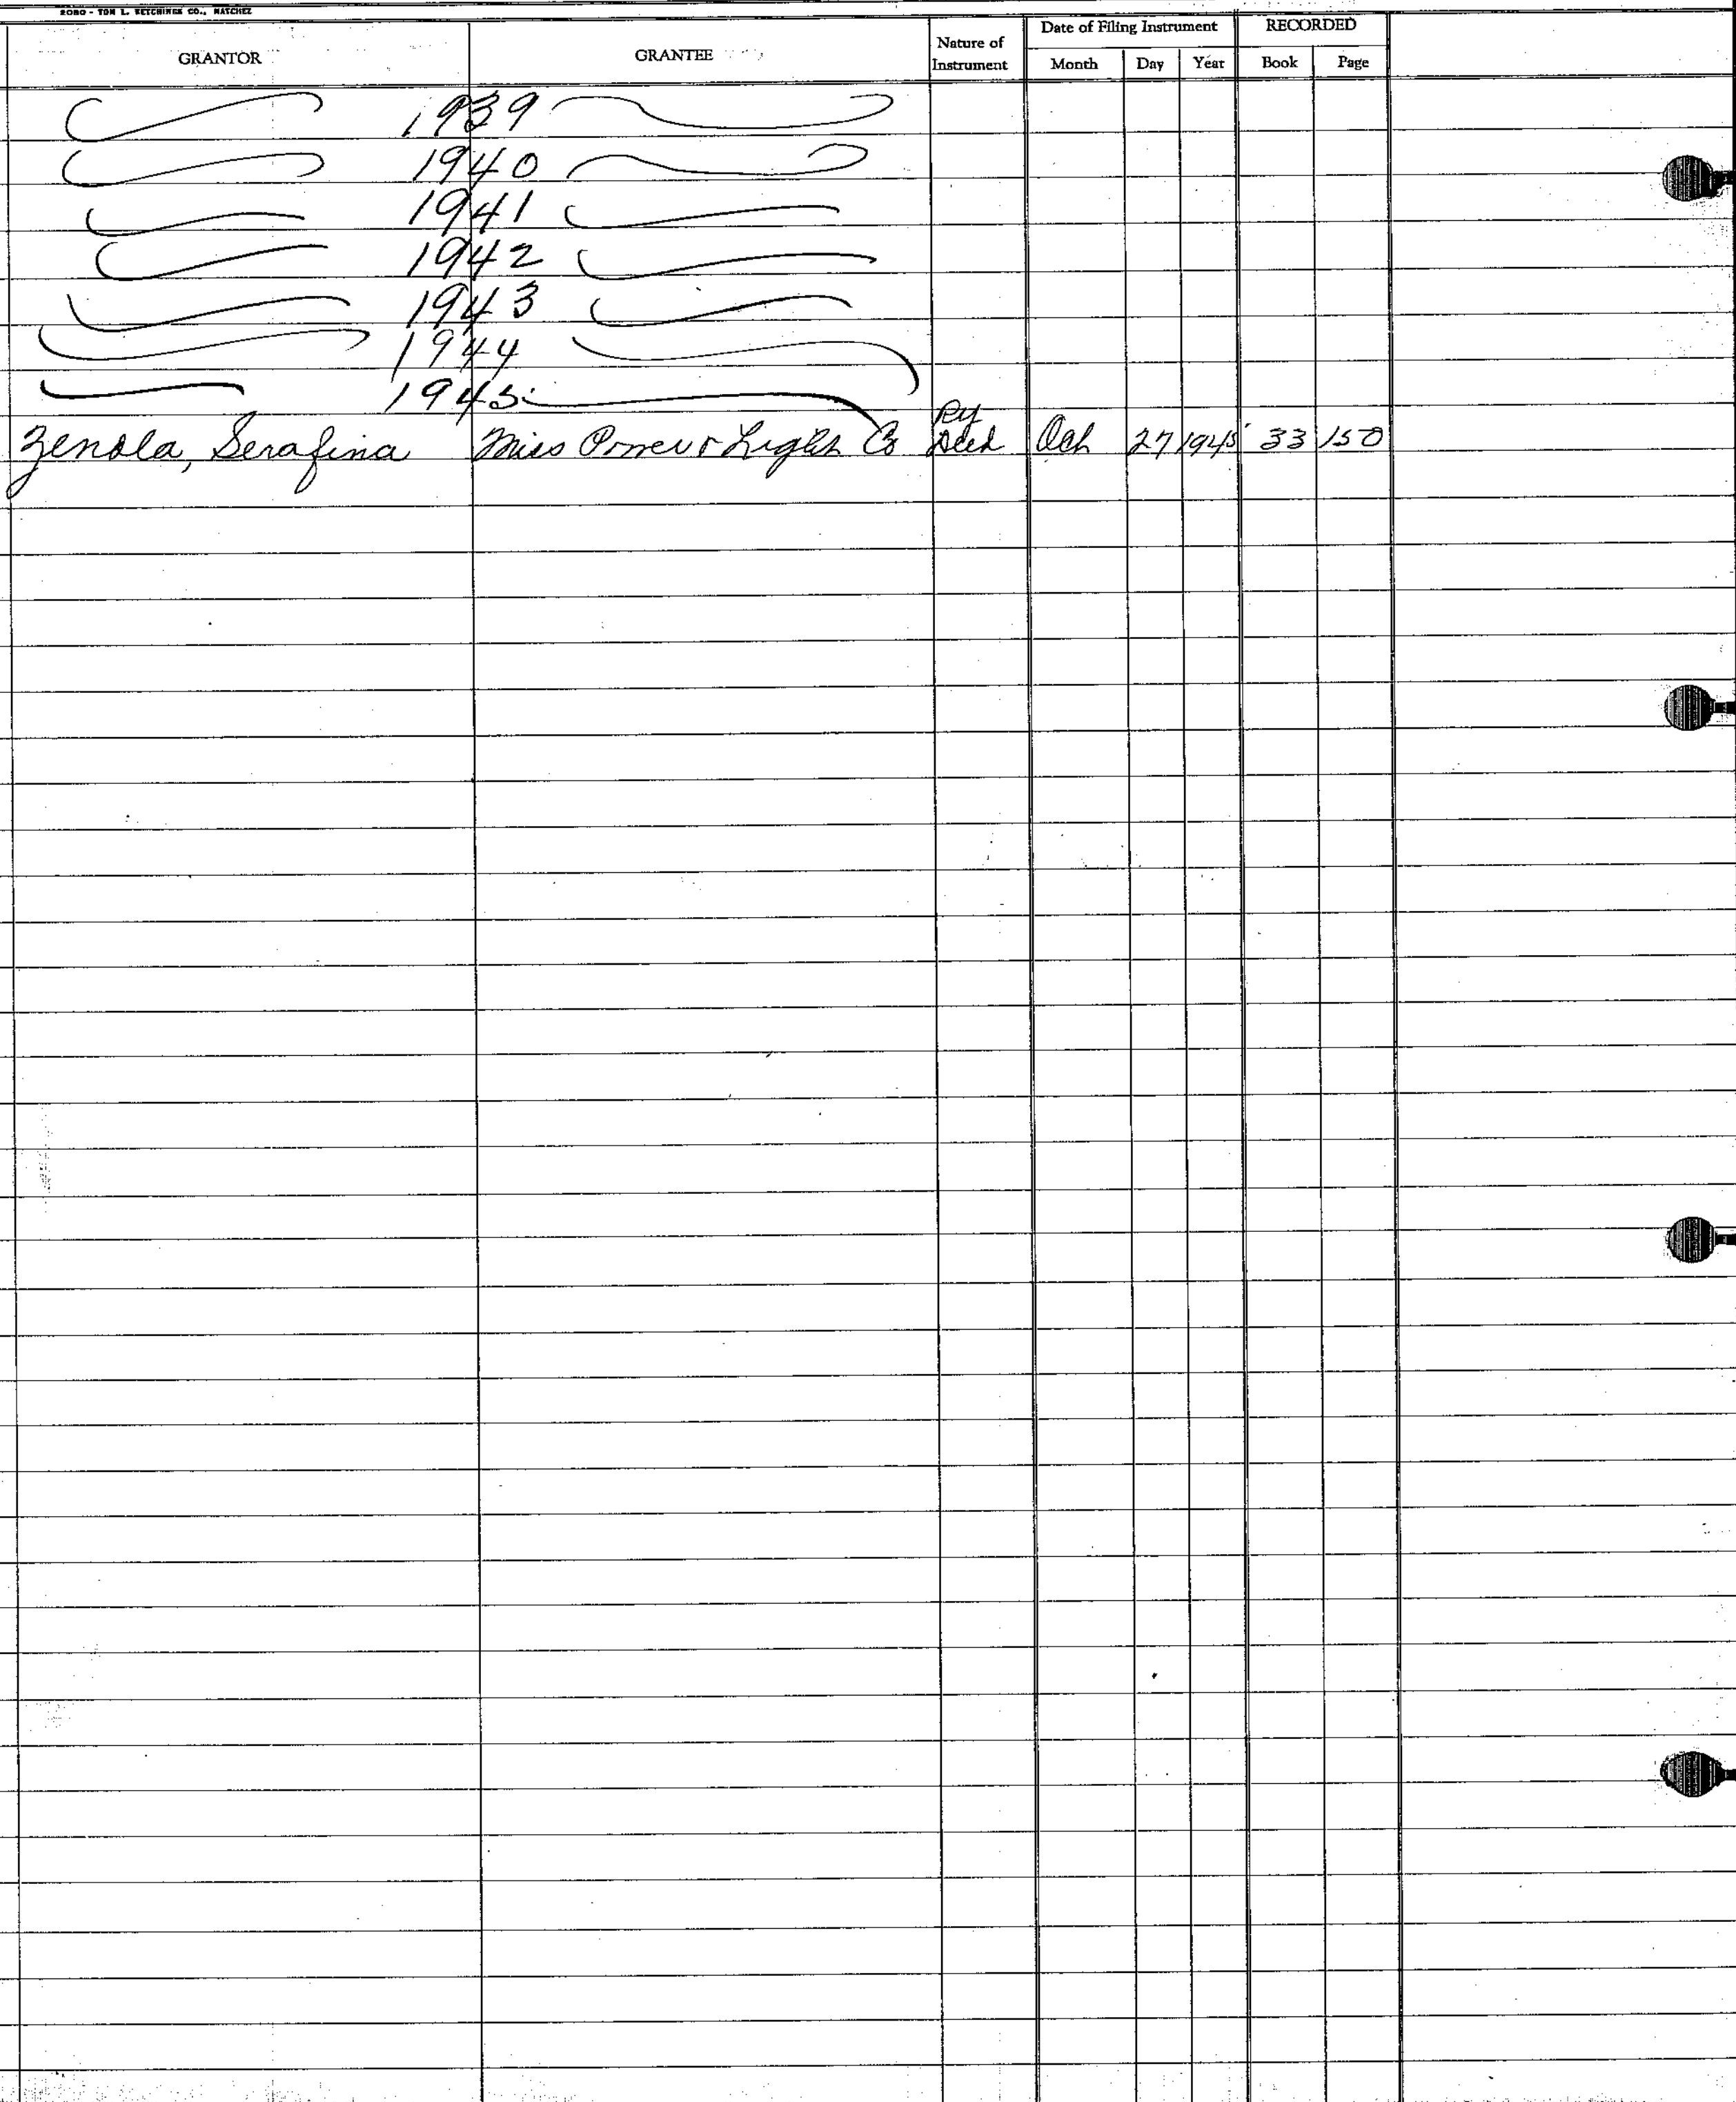 2080 - TOM L. KETCHINGS CO., NATCHEZ
GRANTOR GRANTEE Nature of Instrument Date of Filing Instrument RECORDED
Month Day Year Book Page
1939
1940
1941
1942
1943
1944
1945
Zenola, Serafina Miss Power & Light Co Deed Oct 27 1945 33 150